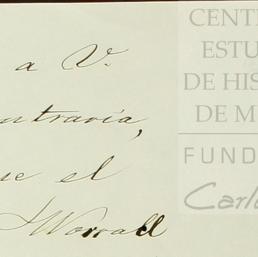 a V.
ntraria,
ue el
Worrall
CENT
ESTU
DE HIS
DE M
FUND
Carlo